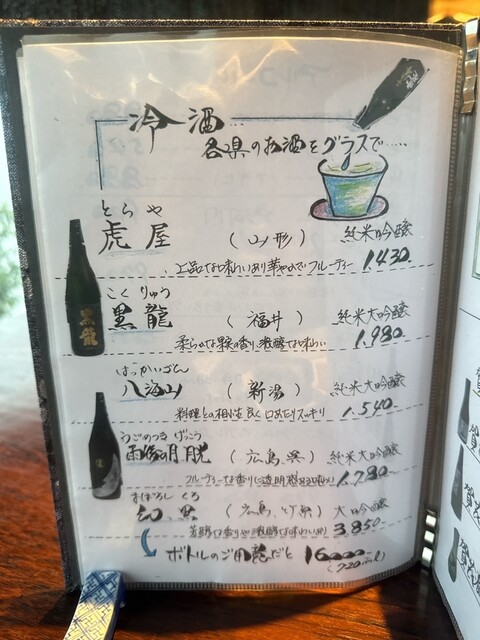 冷酒…
各県のお酒をグラスで……
とらや
虎屋 (山形) 純米吟醸
上品な味わいあり華やかでフルーティー 1.430
こくりゅう
黒龍 (福井) 純米大吟醸
柔らかな果の香り、芳醇な味わい 1.980
はっかいさん
八海山 (新潟) 純米大吟醸
料理との相性良く口あたりスッキリ 1.540
うごのつき げっこう
雨後の月 月光 (広島、呉) 純米大吟醸
フルーティーな香りに透明感ある味わい 1.780
まぼろし くろ
幻 黒 (広島、竹原) 大吟醸
芳醇な香りや味わい 3.850
ボトルのご用意だと 16000
(720ml)
黒龍